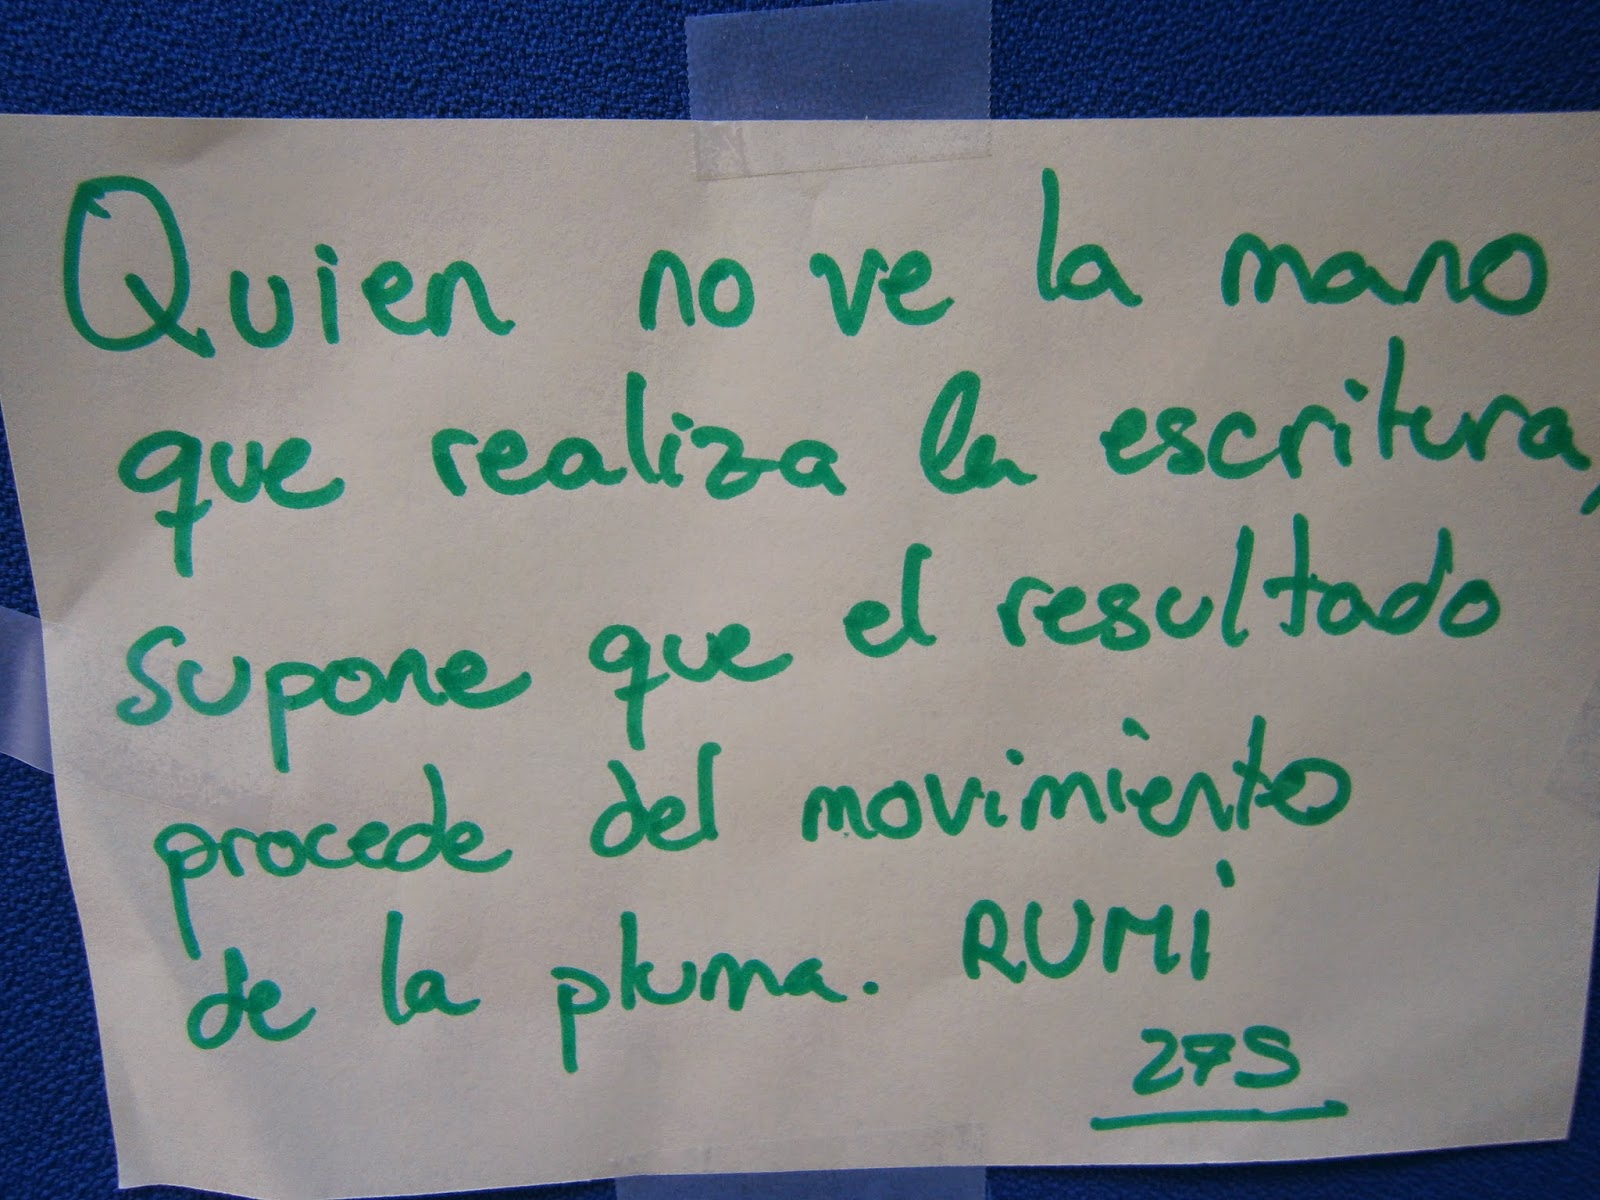 Quien no ve la mano
que realiza la escritura,
supone que el resultado
procede del movimiento
de la pluma. RUMI
27S